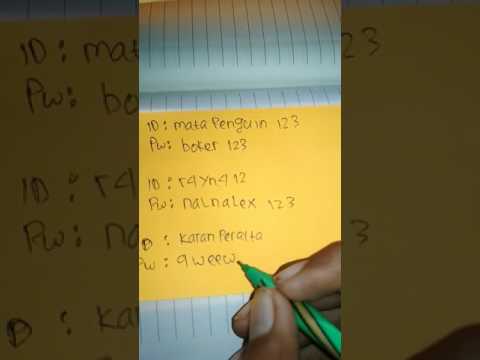 ID: mata Penguin 123
Pw: boker 123
ID: r4yn412
Pw: nalnalex 123
ID: Karan Peralta
Pw: 9weew